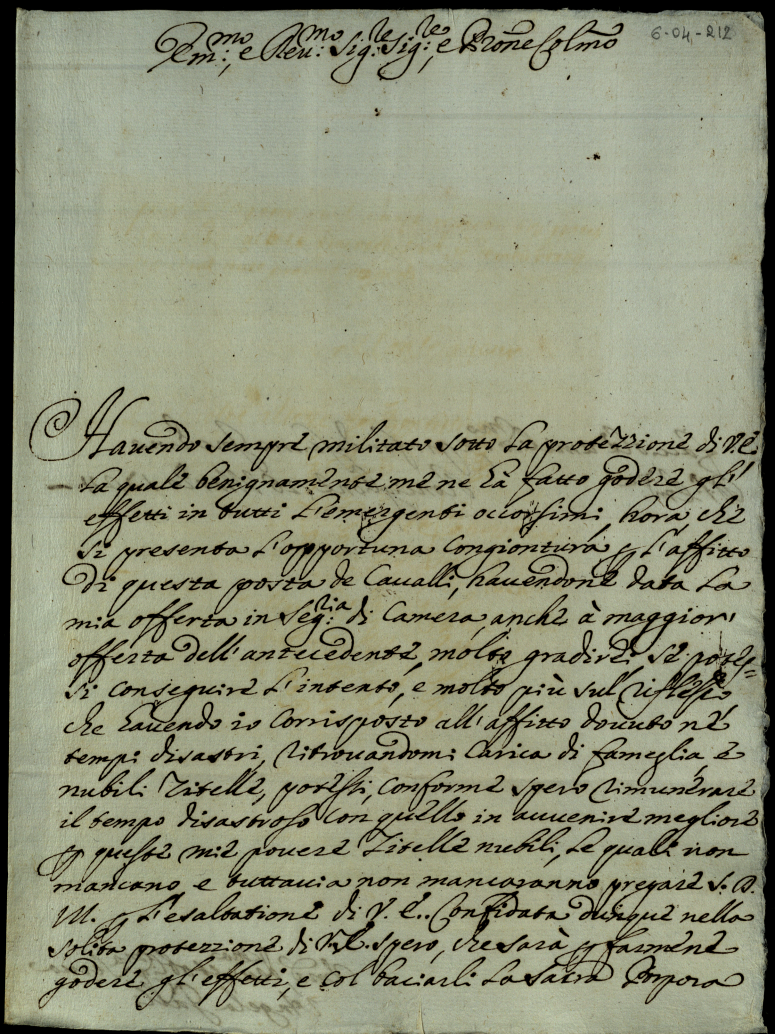 Em:mo, e Reu:mo Sig:re Sig:re, e Prone Colmo
6-04.-212
Hauendo sempre militato sotto la protezzione di V.E.
la quale benignamente me ne hà fatto godere gl'
effetti in tutti l'emergenti occorsimi, hora che
si presenta l'opportuna congiontura p l'affitto
di questa posta de Caualli, hauendone data la
mia offerta in Seg:ria di Camera, anche à maggior'
offerta dell'antecedente, molto gradirei, se potes=
si conseguire l'intento, e molto più sul riflesso
che hauendo io corrisposto all'affitto douuto ne'
tempi disastri, ritrouandomi carica di fameglia, e
nubili Zitelle, potessi, conforme spero rimunerare
il tempo disastroso con quello in auuenire megliore
p queste mie pouere Zitelle nubili, le quali non
mancano, e tuttauia non mancaranno pregare S. D.
M. p l'esaltatione di V. E.. Confidata dunque nella
solita protezzione di V.E. spero, che sarà p farmene
godere gl'effetti, e col baciarli la sacra Porpora